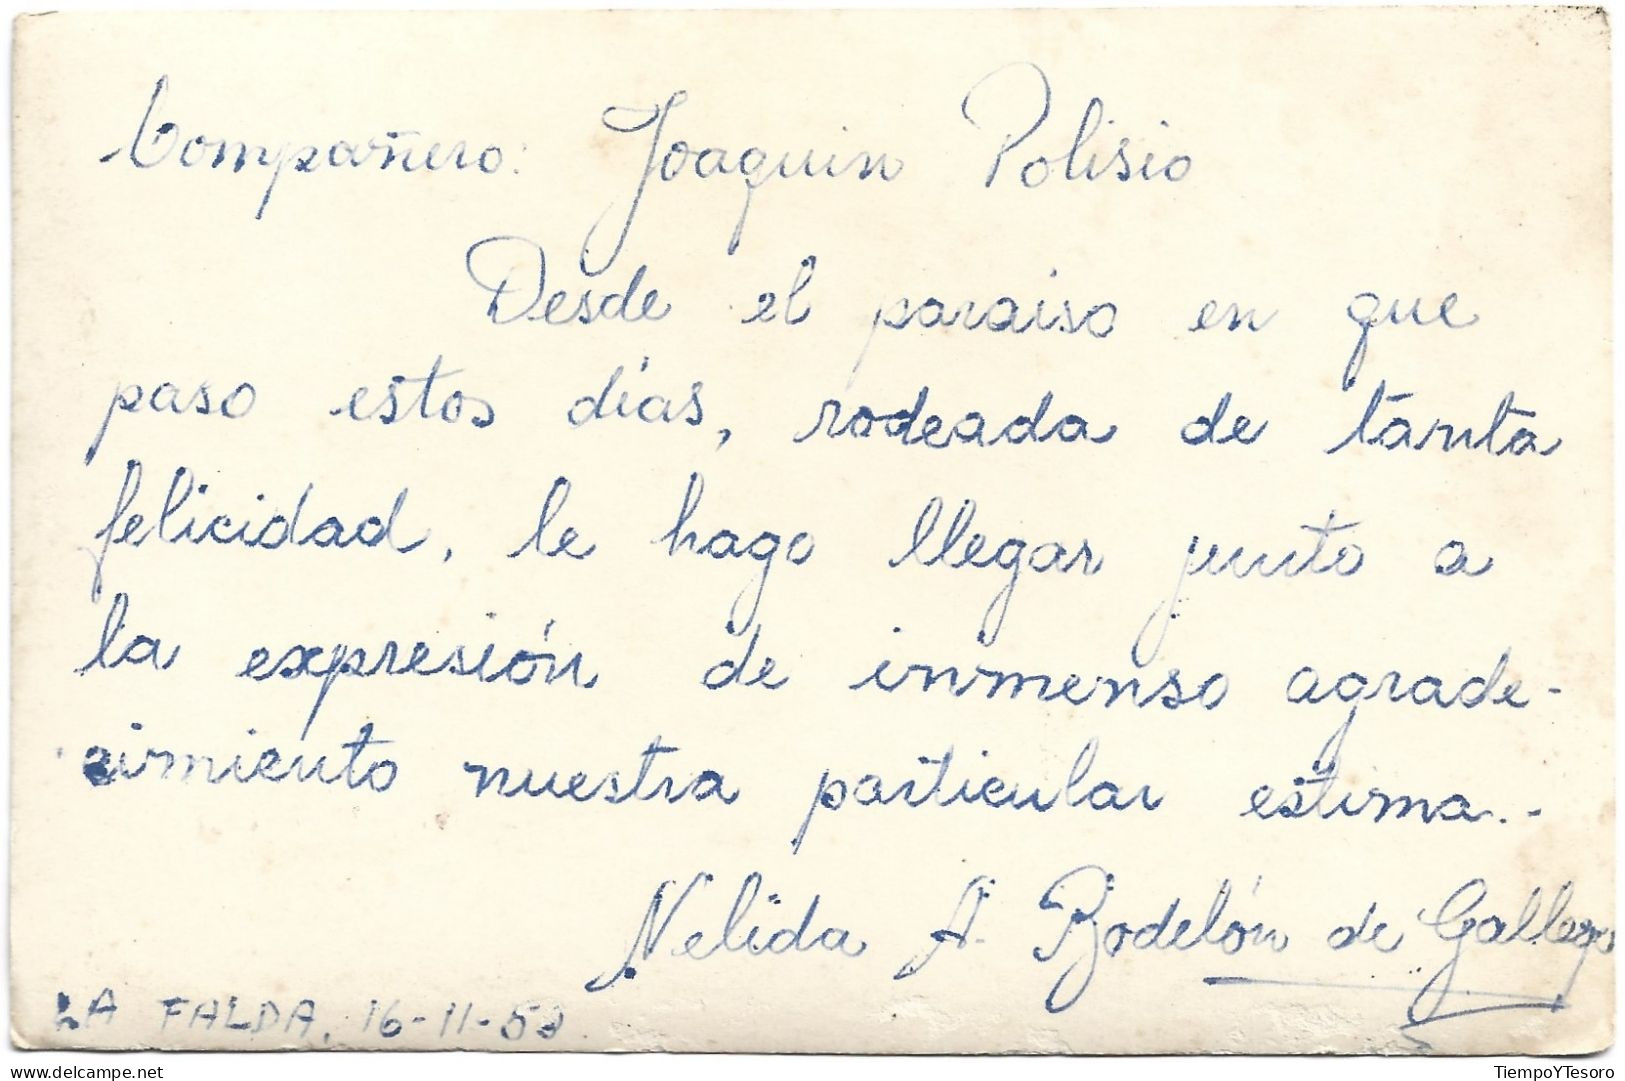 Compañero: Joaquin Polisio
Desde el paraiso en que
paso estos días, rodeada de tanta
felicidad, le hago llegar junto a
la expresión de inmenso agrade-
cimiento nuestra particular estima..-
Nelida A. Bodelón de Gallego
LA FALDA, 16-11-53
TiempoYTesoro